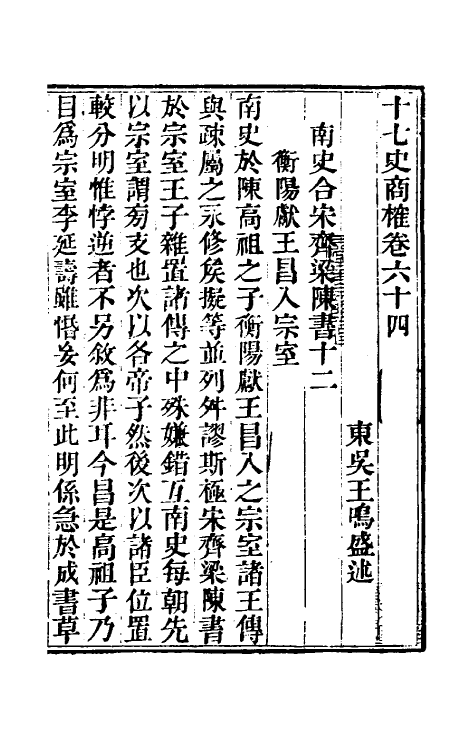 十七史商榷卷六十四
東吳王鳴盛述
南史合宋齊梁陳書十二
衡陽獻王昌入宗室
南史於陳高祖之子衡陽獻王昌入之宗室諸王傳
與疎屬之永修矦擬等並列舛謬斯極宋齊梁陳書
於宗室王子雜置諸傳之中殊嫌錯互南史每朝先
以宗室謂㫄支也次以各帝子然後次以諸臣位置
較分明惟悖逆者不另敘爲非耳今昌是高祖子乃
目爲宗室李延壽雖惛妄何至此明係急於成書草